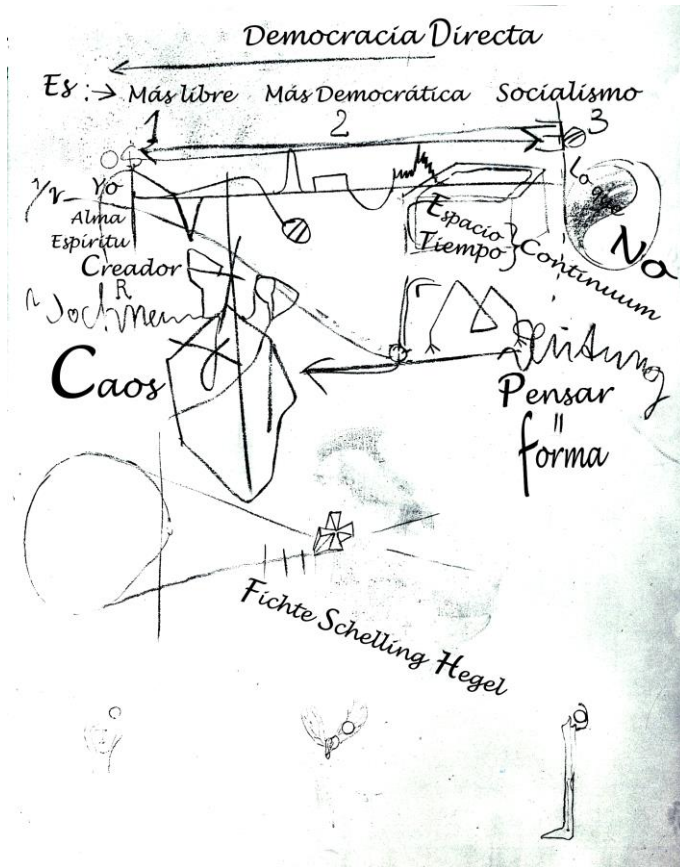 Democracia Directa
Es :→ Más libre Más Democrática Socialismo
1 2 3
Yo
Alma
Espíritu
Espacio
Tiempo
Continuum
No
Creador
R
Caos
Pensar
=
forma
Fichte Schelling Hegel